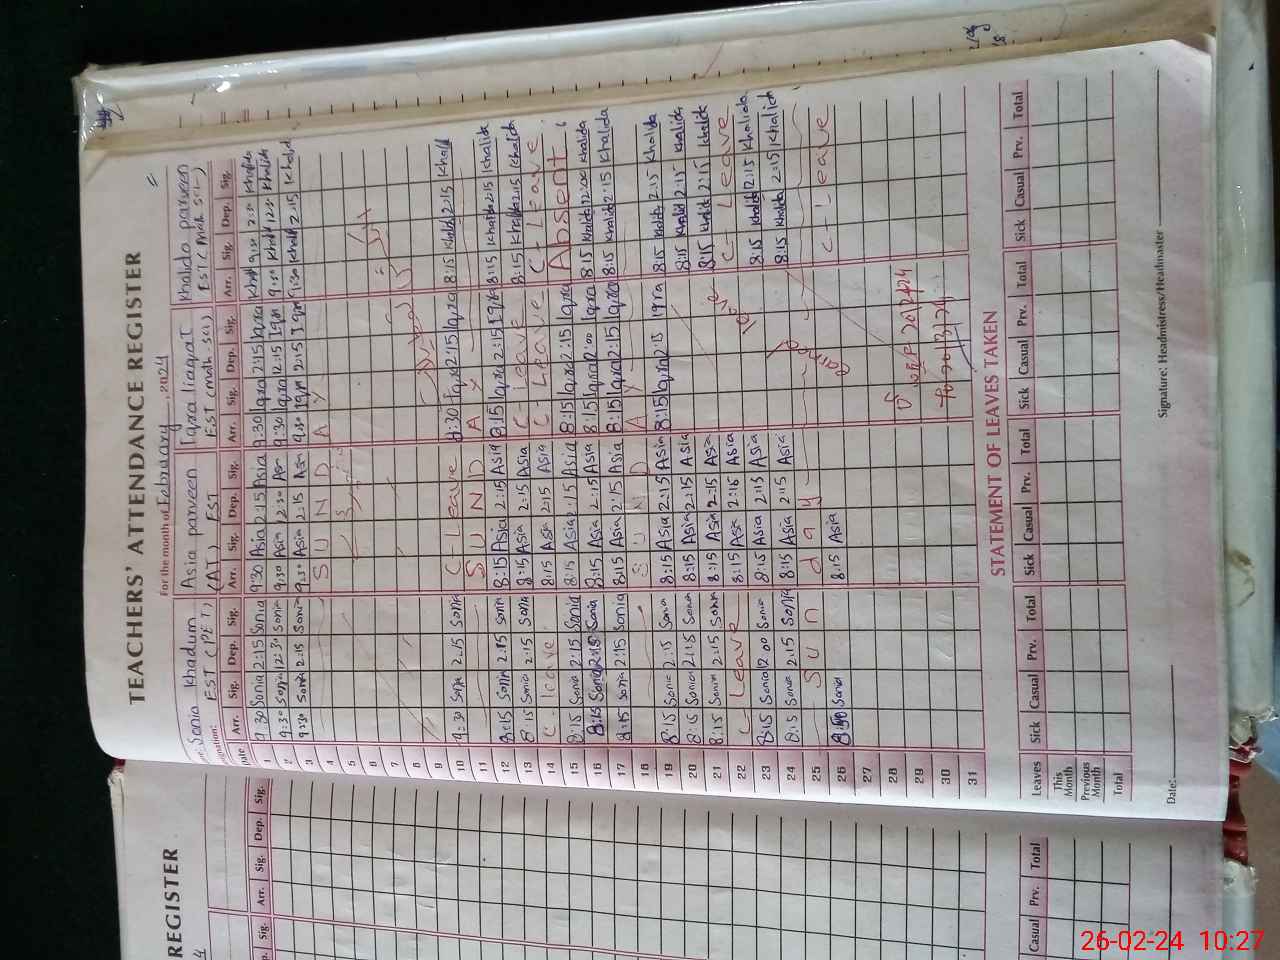 TEACHERS' ATTENDANCE REGISTER
For the month of Febraury, 2024
Sonia khadum Asia parveen Iqra liaqat khalida parveen
EST (PET) (AT) EST EST (math sci) EST (math sci)
Date Arr. Sig. Dep. Sig. Arr. Sig. Dep. Sig. Arr. Sig. Dep. Sig. Arr. Sig. Dep. Sig.
1 9:30 Sonia 2:15 Sonia 9:30 Asia 2:15 Asia 9:30 Iqra 2:15 Iqra
2 9:30 Sonia 12:30 Sonia 9:30 Asia 12:30 9:30 Iqra 12:15
3 9:30 Sonia 2:15 Sonia 9:30 Asia 2:15 Asia 9:30 2:15 2:15
4 S U N D A Y
5
6
7
8
9
10 9:30 Sonia 2:15 Sonia C-Leave 9:30 Iqra 2:15 Iqra 8:15 2:15
11 S U N D A Y
12 8:15 Sonia 2:15 Sonia 8:15 Asia 2:15 Asia 8:15 Iqra 2:15 Iqra 8:15 Khalida 2:15 Khalida
13 8:15 Sonia 2:15 Sonia 8:15 Asia 2:15 Asia C-Leave 8:15 2:15 Khalida
14 C-leave 8:15 Asia 2:15 Asia C-Leave C-Leave
15 8:15 Sonia 2:15 Sonia 8:15 Asia 2:15 Asia 8:15 Iqra 2:15 Iqra Absent
16 8:15 Sonia 2:15 Sonia 8:15 Asia 2:15 Asia 8:15 Iqra 12:00 Iqra 8:15 Khalida 12:00 Khalida
17 8:15 Sonia 2:15 Sonia 8:15 Asia 2:15 Asia 8:15 Iqra 2:15 Iqra 8:15 Khalid 2:15 Khalida
18 S U N D A Y
19 8:15 Sonia 2:15 Sonia 8:15 Asia 2:15 Asia 8:15 Iqra 2:15 Iqra 8:15 Khalida 2:15 Khalida
20 8:15 Sonia 2:15 Sonia 8:15 Asia 2:15 Asia 8:15 Khalid 2:15 Khalida
21 8:15 Sonia 2:15 Sonia 8:15 Asia 2:15 Asia 8:15 Khalid 2:15 Khalida
22 C-Leave 8:15 Asia 2:15 Asia C-Leave
23 8:15 Sonia 12:00 Sonia 8:15 Asia 2:15 Asia 8:15 Khalid 12:15 Khalida
24 8:15 Sonia 2:15 Sonia 8:15 Asia 2:15 Asia 8:15 Khalida 2:15 Khalida
25 S u n d a y
26 Sonia 8:15 Asia C-Leave
27
28
29
30
31
STATEMENT OF LEAVES TAKEN
Leaves Sick Casual Prv. Total Sick Casual Prv. Total Sick Casual Prv. Total Sick Casual Prv. Total
This Month
Previous Month
Total
Date: Signature: Headmistress/Headmaster
REGISTER
4
Sig. Arr. Sig. Dep. Sig.
Casual Prv. Total
26-02-24 10:27